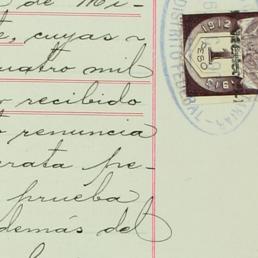 de Mi-
cuyas
cuatro mil
recibido
renuncia
rata pe-
prueba
demás del
1912
1
PESO
1913
DISTRITO FEDERAL